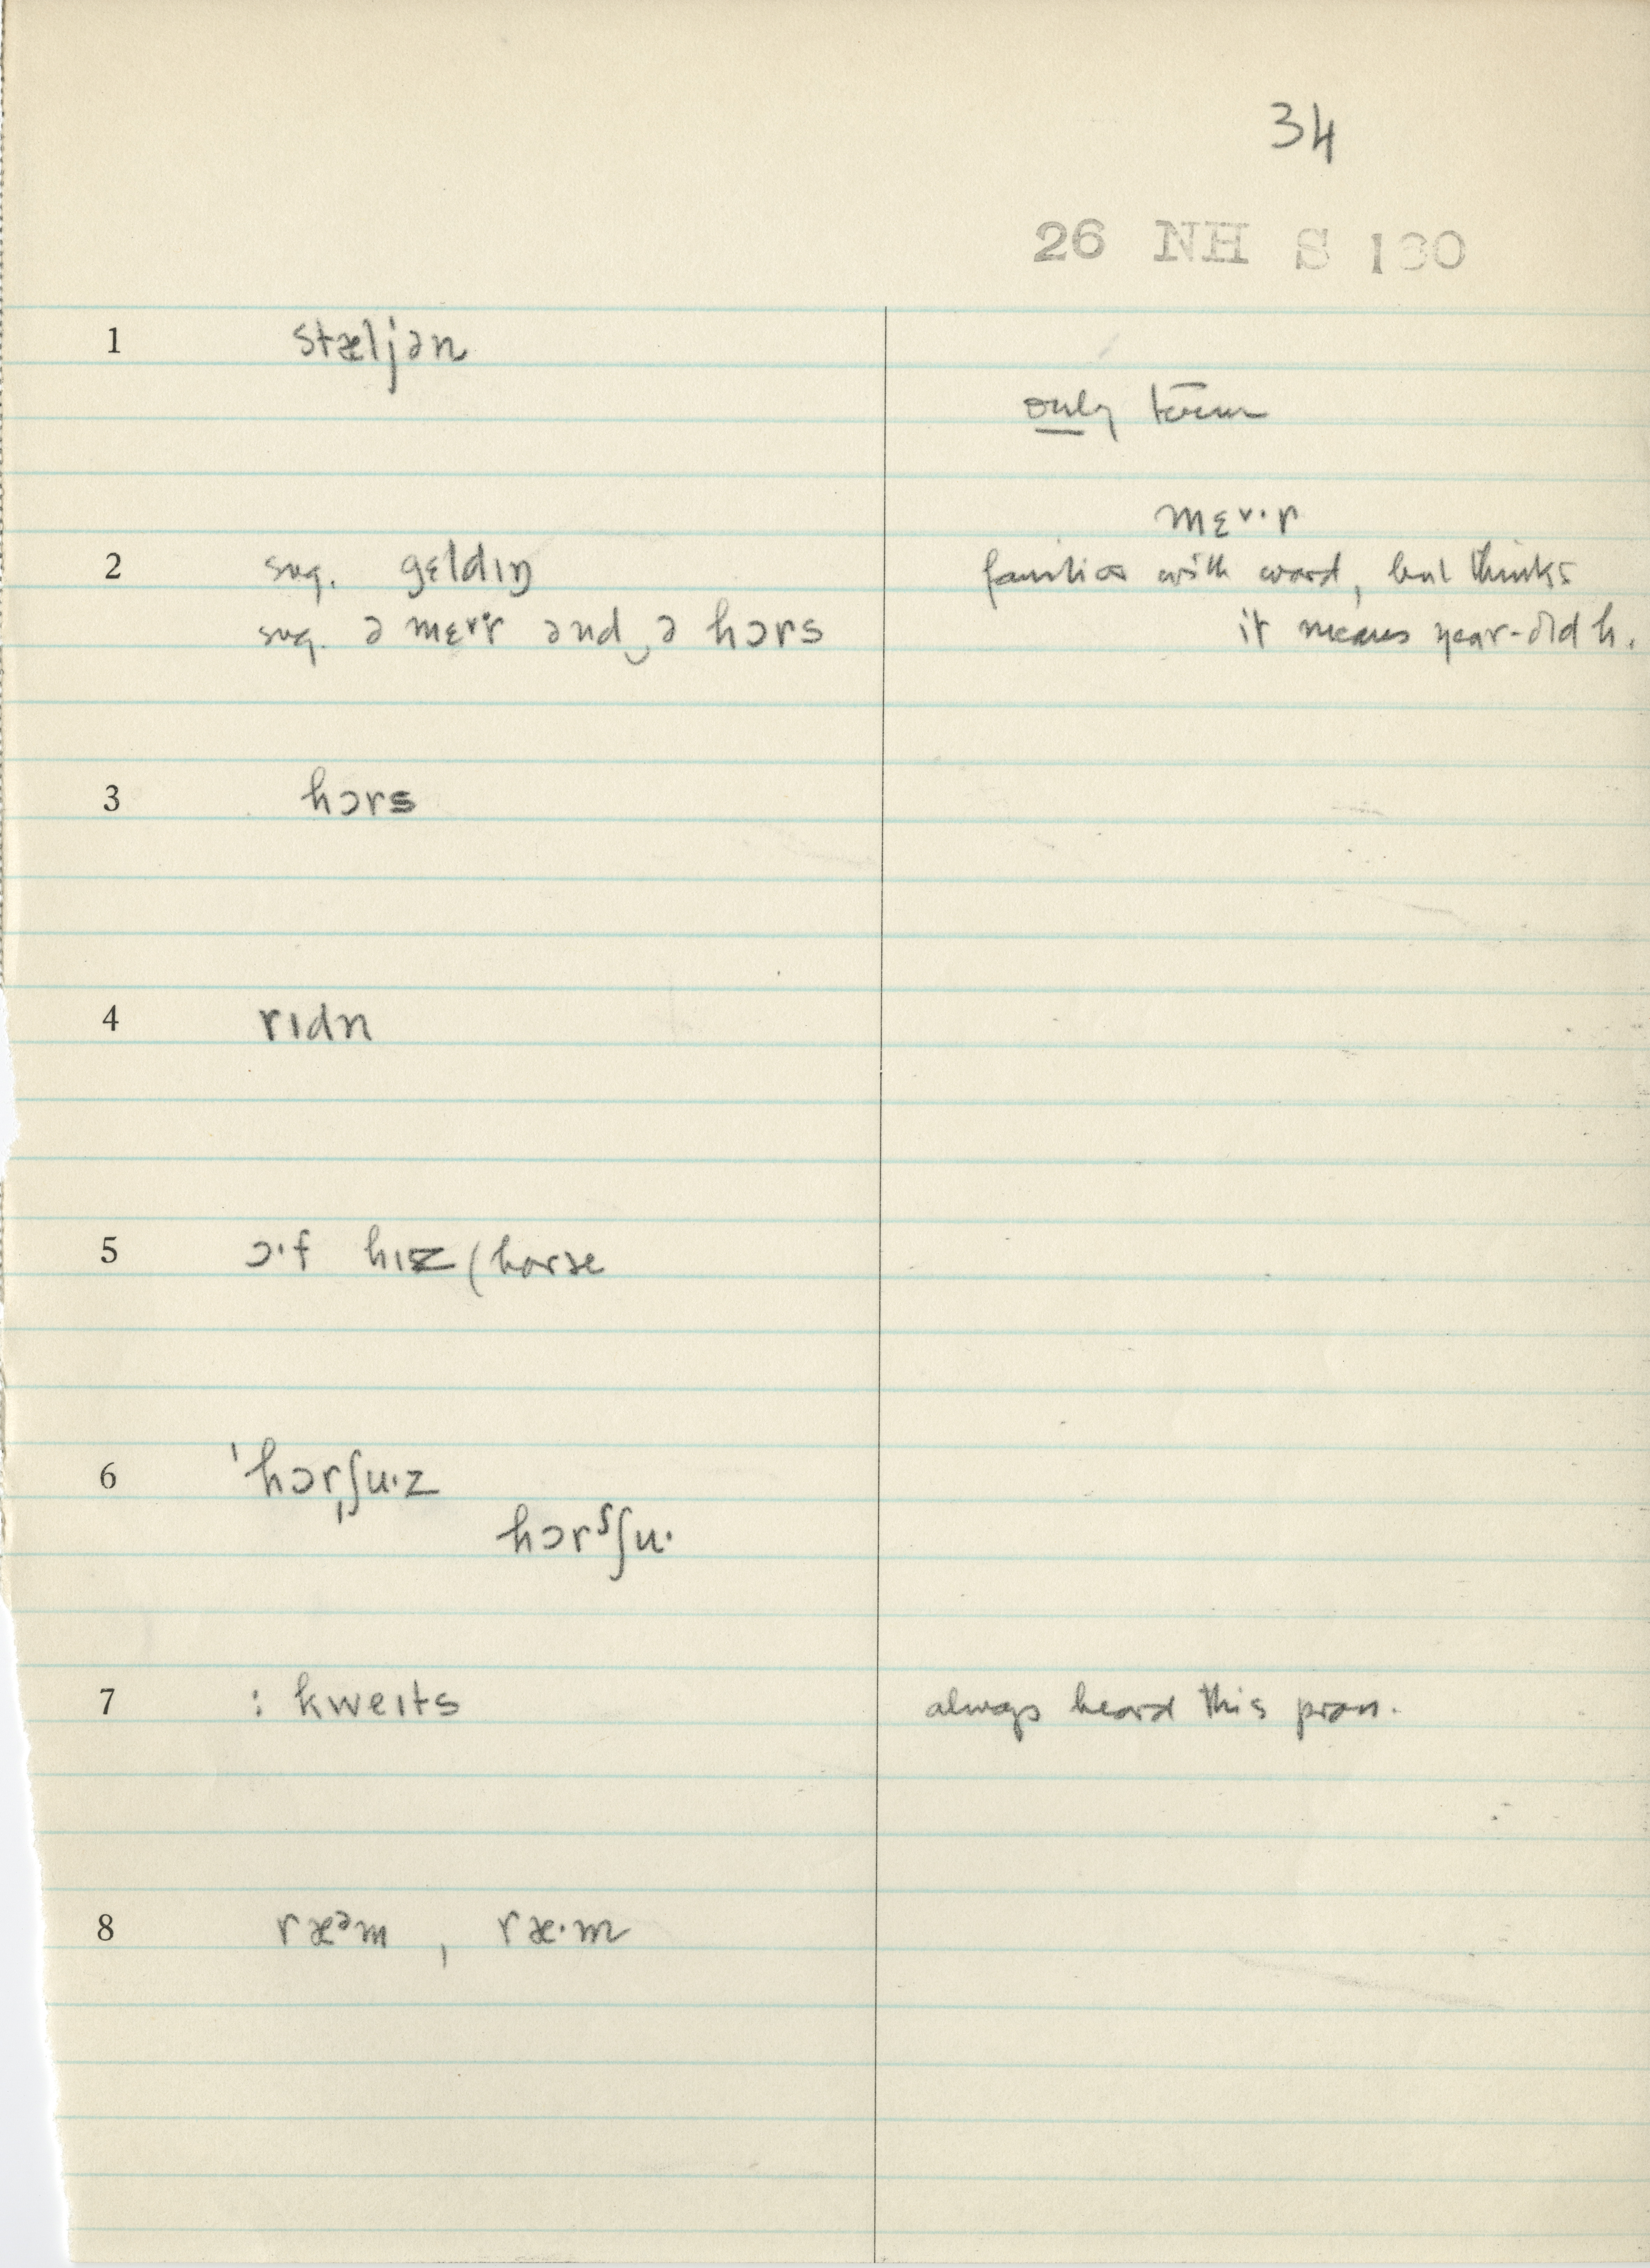 34
26 NH S 130
1 stæljən
only term
mɛ˅·r
2 sug. gɛldɪŋ familiar with word, but thinks
sug. ə mɛ˅·r ənd‿ə hɔrs it means year-old h.
3 hɔrs
4 rɪdn
5 ɔ·f hɪz (horse
6 ˈhɔrˌʃu·z
hɔrˢʃu·
7 : kweɪts always heard this pron.
8 ræᵊm , ræ·m